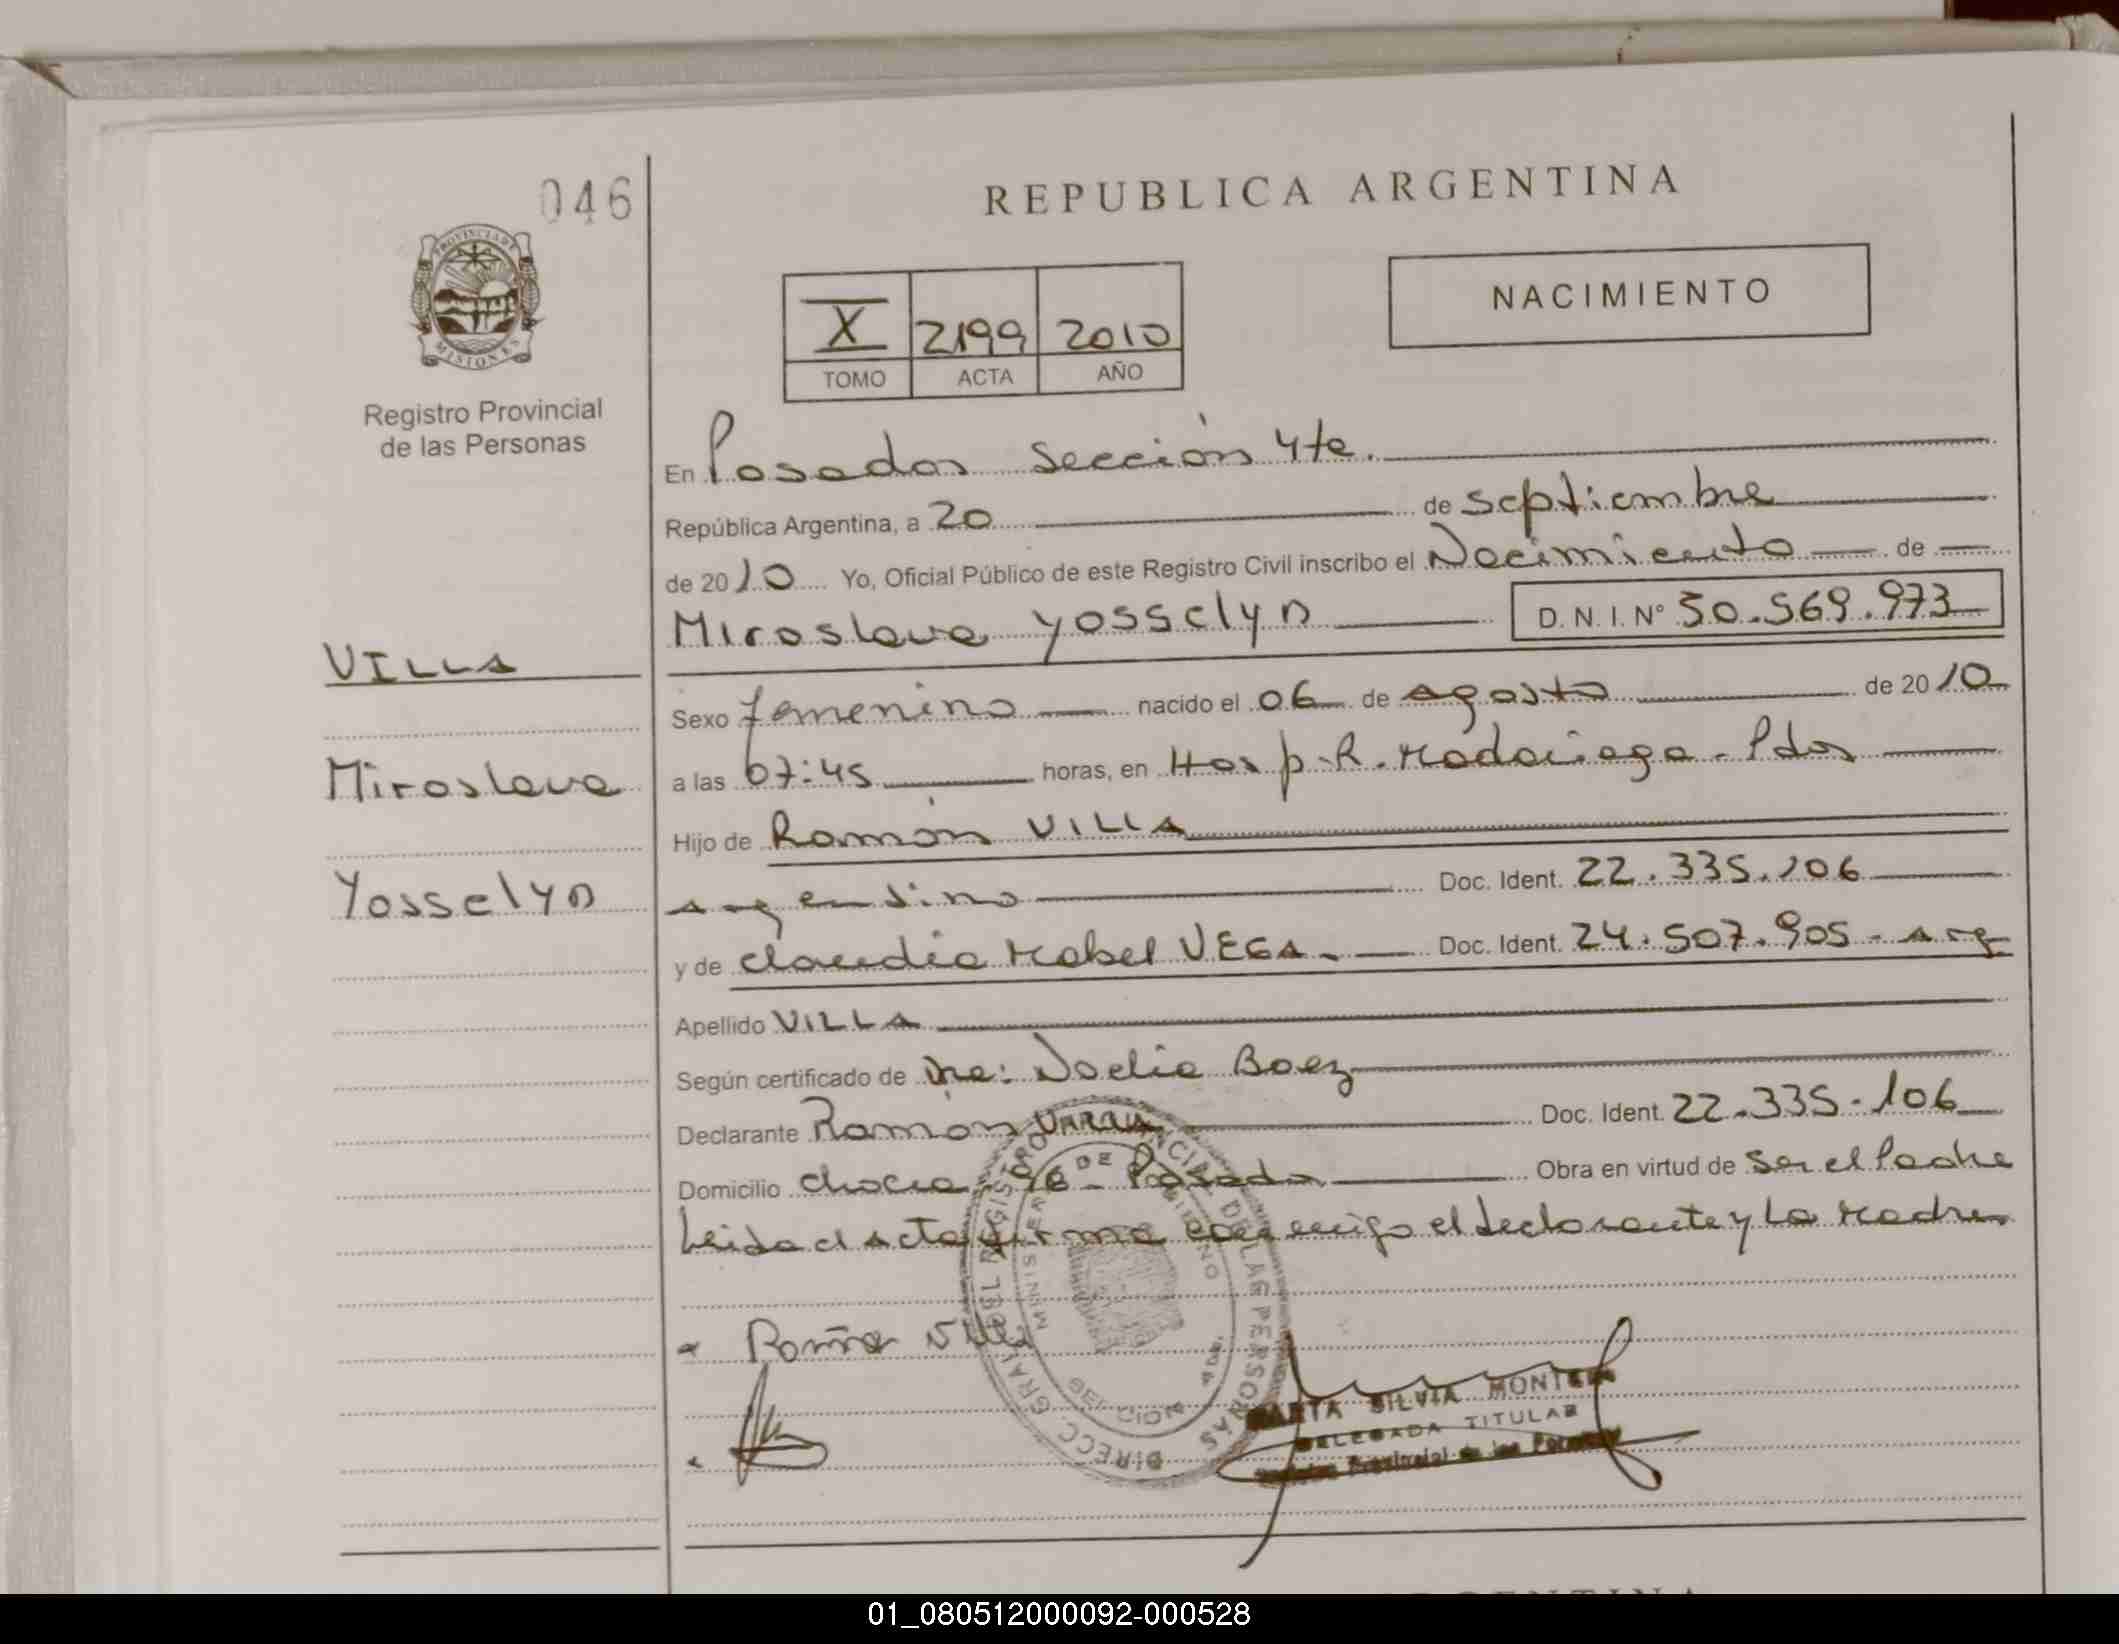 046
REPUBLICA ARGENTINA
PROVINCIA DE
MISIONES
NACIMIENTO
X 2199 2010
TOMO ACTA AÑO
Registro Provincial
de las Personas
En Posadas Sección 4ta.
República Argentina, a 20 de septiembre
de 2010 Yo, Oficial Público de este Registro Civil inscribo el Nacimiento de
Miroslava Yosselyn D. N. I. N° 50.569.973
VILLA
Miroslava
Yosselyn
Sexo femenino nacido el 06 de agosto de 2010
a las 07:45 horas, en Hosp. R. Madariaga - Pdas
Hijo de Ramón VILLA
argentino Doc. Ident. 22.335.106
y de Claudia Mabel VEGA.- Doc. Ident. 24.507.905 - arg
Apellido VILLA
Según certificado de Dra: Noelia Baez
Declarante Ramón Doc. Ident. 22.335.106
Domicilio chacra 96 - Posadas Obra en virtud de ser el Padre
Leida el acta firma conmigo el declarante y La Madre
Villa
DIRECC. GRAL. DEL REGISTRO PROVINCIAL DE LAS PERSONAS
MARTA SILVIA
DELEGADA TITULAR
Provincial de las Personas
01_080512000092-000528